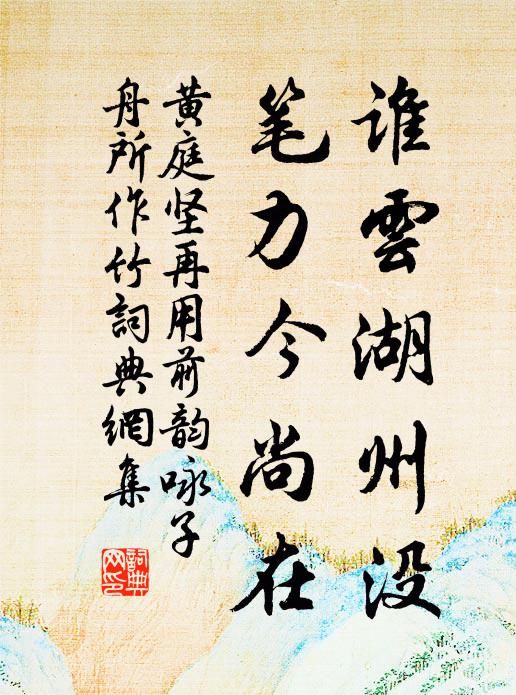 谁雲湖州没
笔力今尚在
黄庭坚再用前韵咏子
舟所作竹詞典網集
詞典
网印